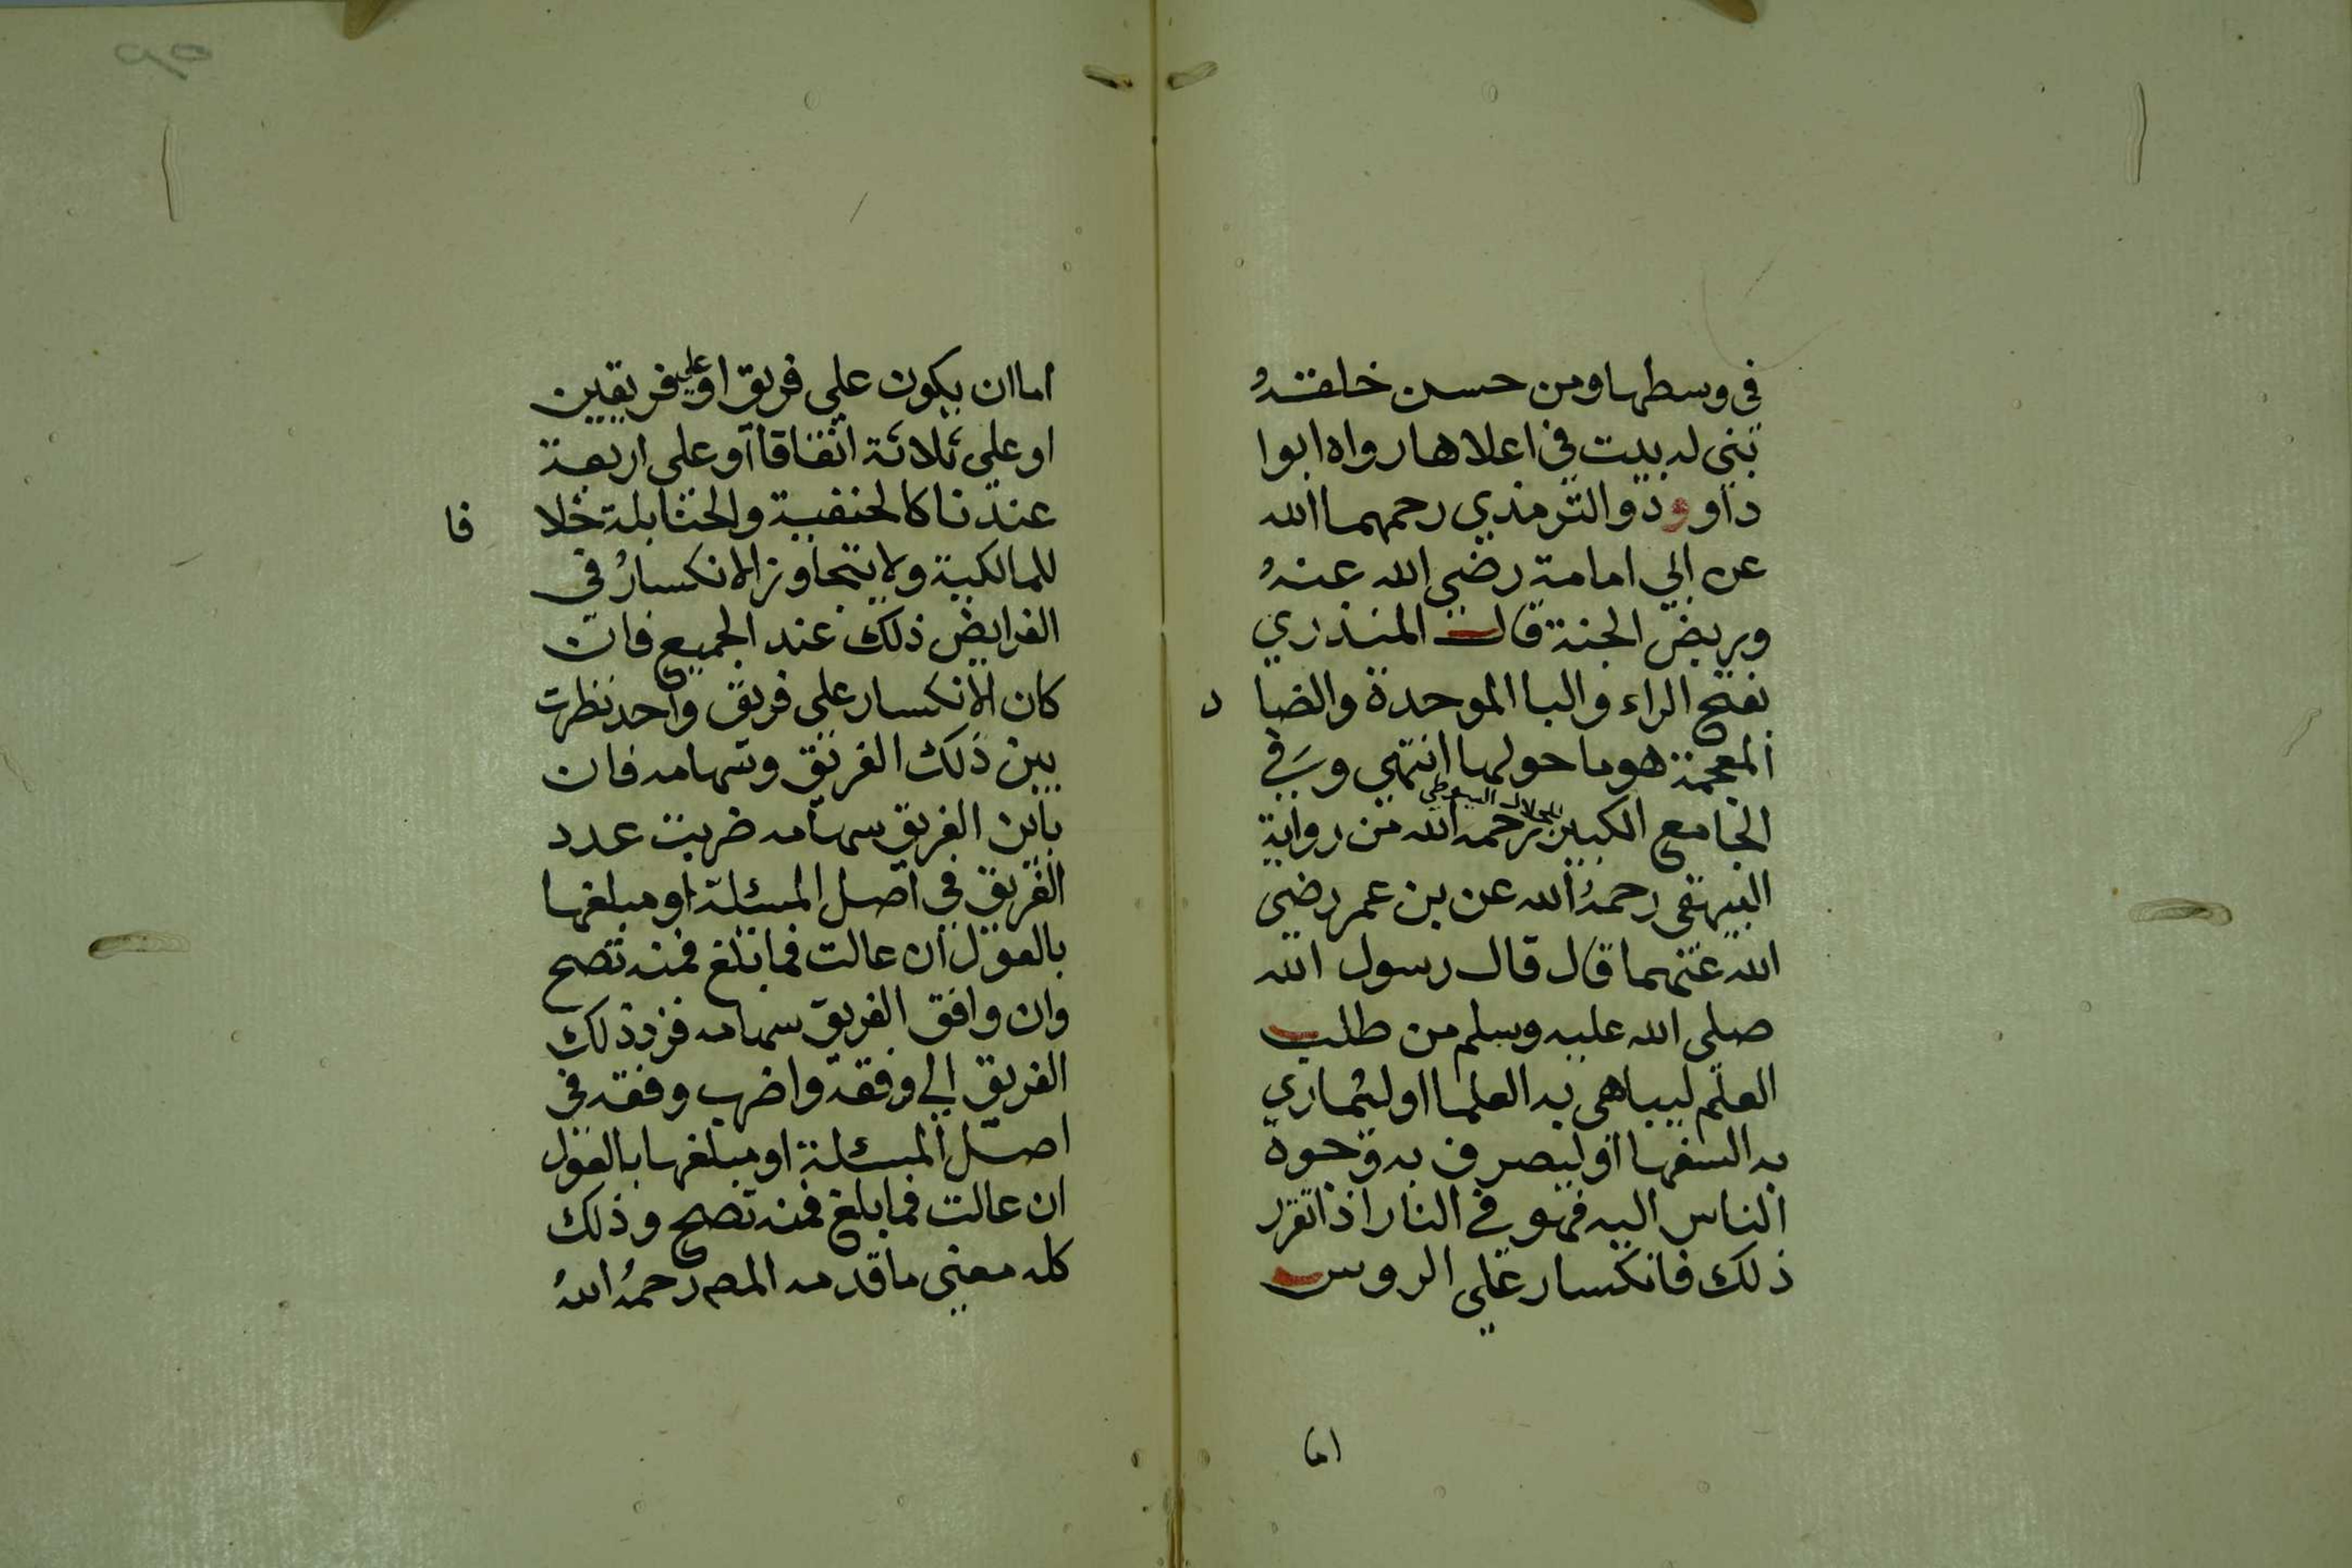 في وسطها ومن حسن خلقه
بني له بيت في اعلاها رواه ابوا
داوود والترمذي رحمهما الله
عن ابي امامة رضي الله عنه
وربض الجنة قال المنذري
بفتح الراء والبا الموحدة والضا د
المعجمة هو ما حولها انتهى وَفي
الجامع الكبير للجلال السيوطي رحمه الله من رواية
البيهقى رحمهُ الله عن بن عمر رضي
الله عنهما قال قال رسول الله
صلى الله عليه وسلم من طلب
العلم ليباهى به العلما او ليماري
به السفها او ليصرف به وجوه
الناس اليه فهو في النار اذا تقرر
ذلك فانكسار على الروس
اما
اما ان يكون على فريق او على فريقين
او على ثلاثة اتفاقا او على اربعة
عندنا كالحنفية والحنابلة خلا فا
للمالكية ولا يتجاوز الانكسارُ في
الفرايض ذلك عند الجميع فان
كان الانكسار على فريق واحد نظرت
بين ذلك الفريق وسهامه فان
باين الفريق سهامه ضربت عدد
الفريق في اصل المسئلة او مبلغها
بالعول ان عالت فما بلغ فمنه تصح
وان وافق الفريق سهامه فرد ذلك
الفريق الي وفقه واضرب وفقه في
اصل المسئلة او مبلغها بالعول
ان عالت فما بلغ فمنه تصح وذلك
كله معنى ما قدمه المص رحمهُ اللهُ